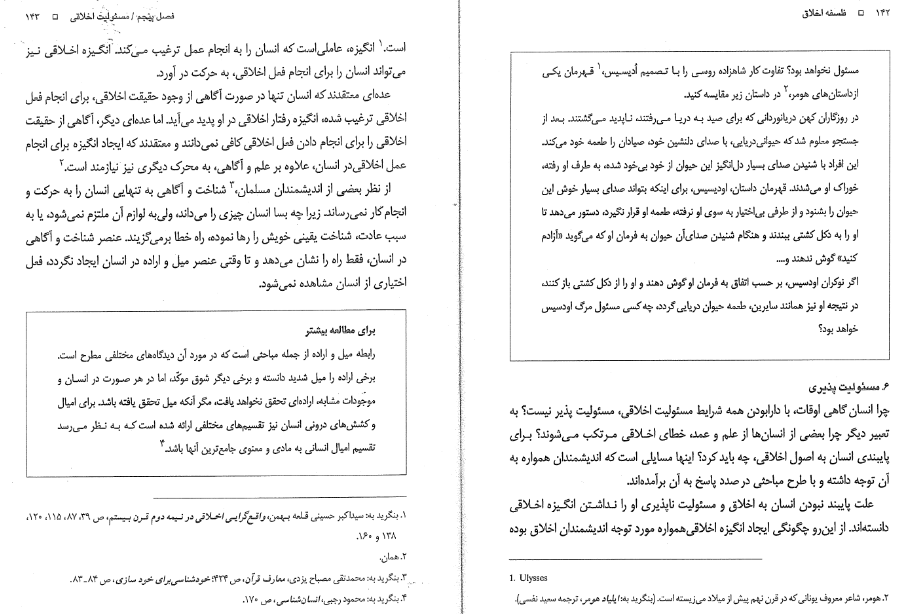 ۱۴۲ □ فلسفه اخلاق
مسئول نخواهد بود؟ تفاوت کار شاهزاده روسی را با تصمیم اُدیسیس،۱ قهرمان یکی
از داستان‌های هومر،۲ در داستان زیر مقایسه کنید.
در روزگاران کهن دریانوردانی که برای صید به دریا می‌رفتند، ناپدید می‌گشتند. بعد از
جستجو معلوم شد که حیوانی‌دریایی، با صدای دلنشین خود، صیادان را طعمه خود می‌کند.
این افراد با شنیدن صدای بسیار دل‌انگیز این حیوان از خود بی‌خود شده، به طرف او رفته،
خوراک او می‌شدند. قهرمان داستان، اودیسیس، برای اینکه بتواند صدای بسیار خوش این
حیوان را بشنود و از طرفی بی‌اختیار به سوی او نرفته، طعمه او قرار نگیرد، دستور می‌دهد تا
او را به دکل کشتی ببندند و هنگام شنیدن صدای‌آن حیوان به فرمان او که می‌گوید «آزادم
کنید» گوش ندهند و....
اگر نوکران اودسیس، بر حسب اتفاق به فرمان او گوش دهند و او را از دکل کشتی باز کنند،
در نتیجه او نیز همانند سایرین، طعمه حیوان دریایی گردد، چه کسی مسئول مرگ اودسیس
خواهد بود؟
۶. مسئولیت پذیری
چرا انسان گاهی اوقات، با دارابودن همه شرایط مسئولیت اخلاقی، مسئولیت پذیر نیست؟ به
تعبیر دیگر چرا بعضی از انسان‌ها از علم و عمد، خطای اخلاقی مرتکب می‌شوند؟ برای
پایبندی انسان به اصول اخلاقی، چه باید کرد؟ اینها مسایلی است که اندیشمندان همواره به
آن توجه داشته و با طرح مباحثی در صدد پاسخ به آن برآمده‌اند.
علت پایبند نبودن انسان به اخلاق و مسئولیت ناپذیری او را نداشتن انگیزه اخلاقی
دانسته‌اند. از این‌رو چگونگی ایجاد انگیزه اخلاقی‌همواره مورد توجه اندیشمندان اخلاق بوده
1. Ulysses
۲. هومر، شاعر معروف یونانی که در قرن نهم پیش از میلاد می‌زیسته است. (بنگرید به: ایلیاد هومر، ترجمه سعید نفسی).
فصل پنجم / مسئولیت اخلاقی □ ۱۴۳
است.۱ انگیزه، عاملی‌است که انسان را به انجام عمل ترغیب می‌کند. انگیزه اخلاقی نیز
می‌تواند انسان را برای انجام فعل اخلاقی، به حرکت در آورد.
عده‌ای معتقدند که انسان تنها در صورت آگاهی از وجود حقیقت اخلاقی، برای انجام فعل
اخلاقی ترغیب شده، انگیزه رفتار اخلاقی در او پدید می‌آید. اما عده‌ای دیگر، آگاهی از حقیقت
اخلاقی را برای انجام دادن فعل اخلاقی کافی نمی‌دانند و معتقدند که ایجاد انگیزه برای انجام
عمل اخلاقی‌در انسان، علاوه بر علم و آگاهی، به محرک دیگری نیز نیازمند است.۲
از نظر بعضی از اندیشمندان مسلمان،۳ شناخت و آگاهی به تنهایی انسان را به حرکت و
انجام کار نمی‌رساند. زیرا چه بسا انسان چیزی را می‌داند، ولی‌به لوازم آن ملتزم نمی‌شود، یا به
سبب عادت، شناخت یقینی خویش را رها نموده، راه خطا برمی‌گزیند. عنصر شناخت و آگاهی
در انسان، فقط راه را نشان می‌دهد و تا وقتی عنصر میل و اراده در انسان ایجاد نگردد، فعل
اختیاری از انسان مشاهده نمی‌شود.
برای مطالعه بیشتر
رابطه میل و اراده از جمله مباحثی است که در مورد آن دیدگاه‌های مختلفی مطرح است.
برخی اراده را میل شدید دانسته و برخی دیگر شوق موکّد، اما در هر صورت در انسان و
موجودات مشابه، اراده‌ای تحقق نخواهد یافت، مگر آنکه میل تحقق یافته باشد. برای امیال
و کشش‌های درونی انسان نیز تقسیم‌های مختلفی ارائه شده است که به نظر می‌رسد
تقسیم امیال انسانی به مادی و معنوی جامع‌ترین آنها باشد.۴
۱. بنگرید به: سیداکبر حسینی قلعه بهمن، واقع‌گرایی اخلاقی در نیمه دوم قرن بیستم، ص ۳۹، ۸۷، ۱۱۵، ۱۲۰،
۱۳۸ و ۱۶۰.
۲. همان.
۳. بنگرید به: محمدتقی مصباح یزدی، معارف قرآن، ص ۴۲۴؛ خودشناسی‌برای خود سازی، ص ۸۴ـ۸۳.
۴. بنگرید به: محمود رجبی، انسان‌شناسی، ص ۱۷۰.